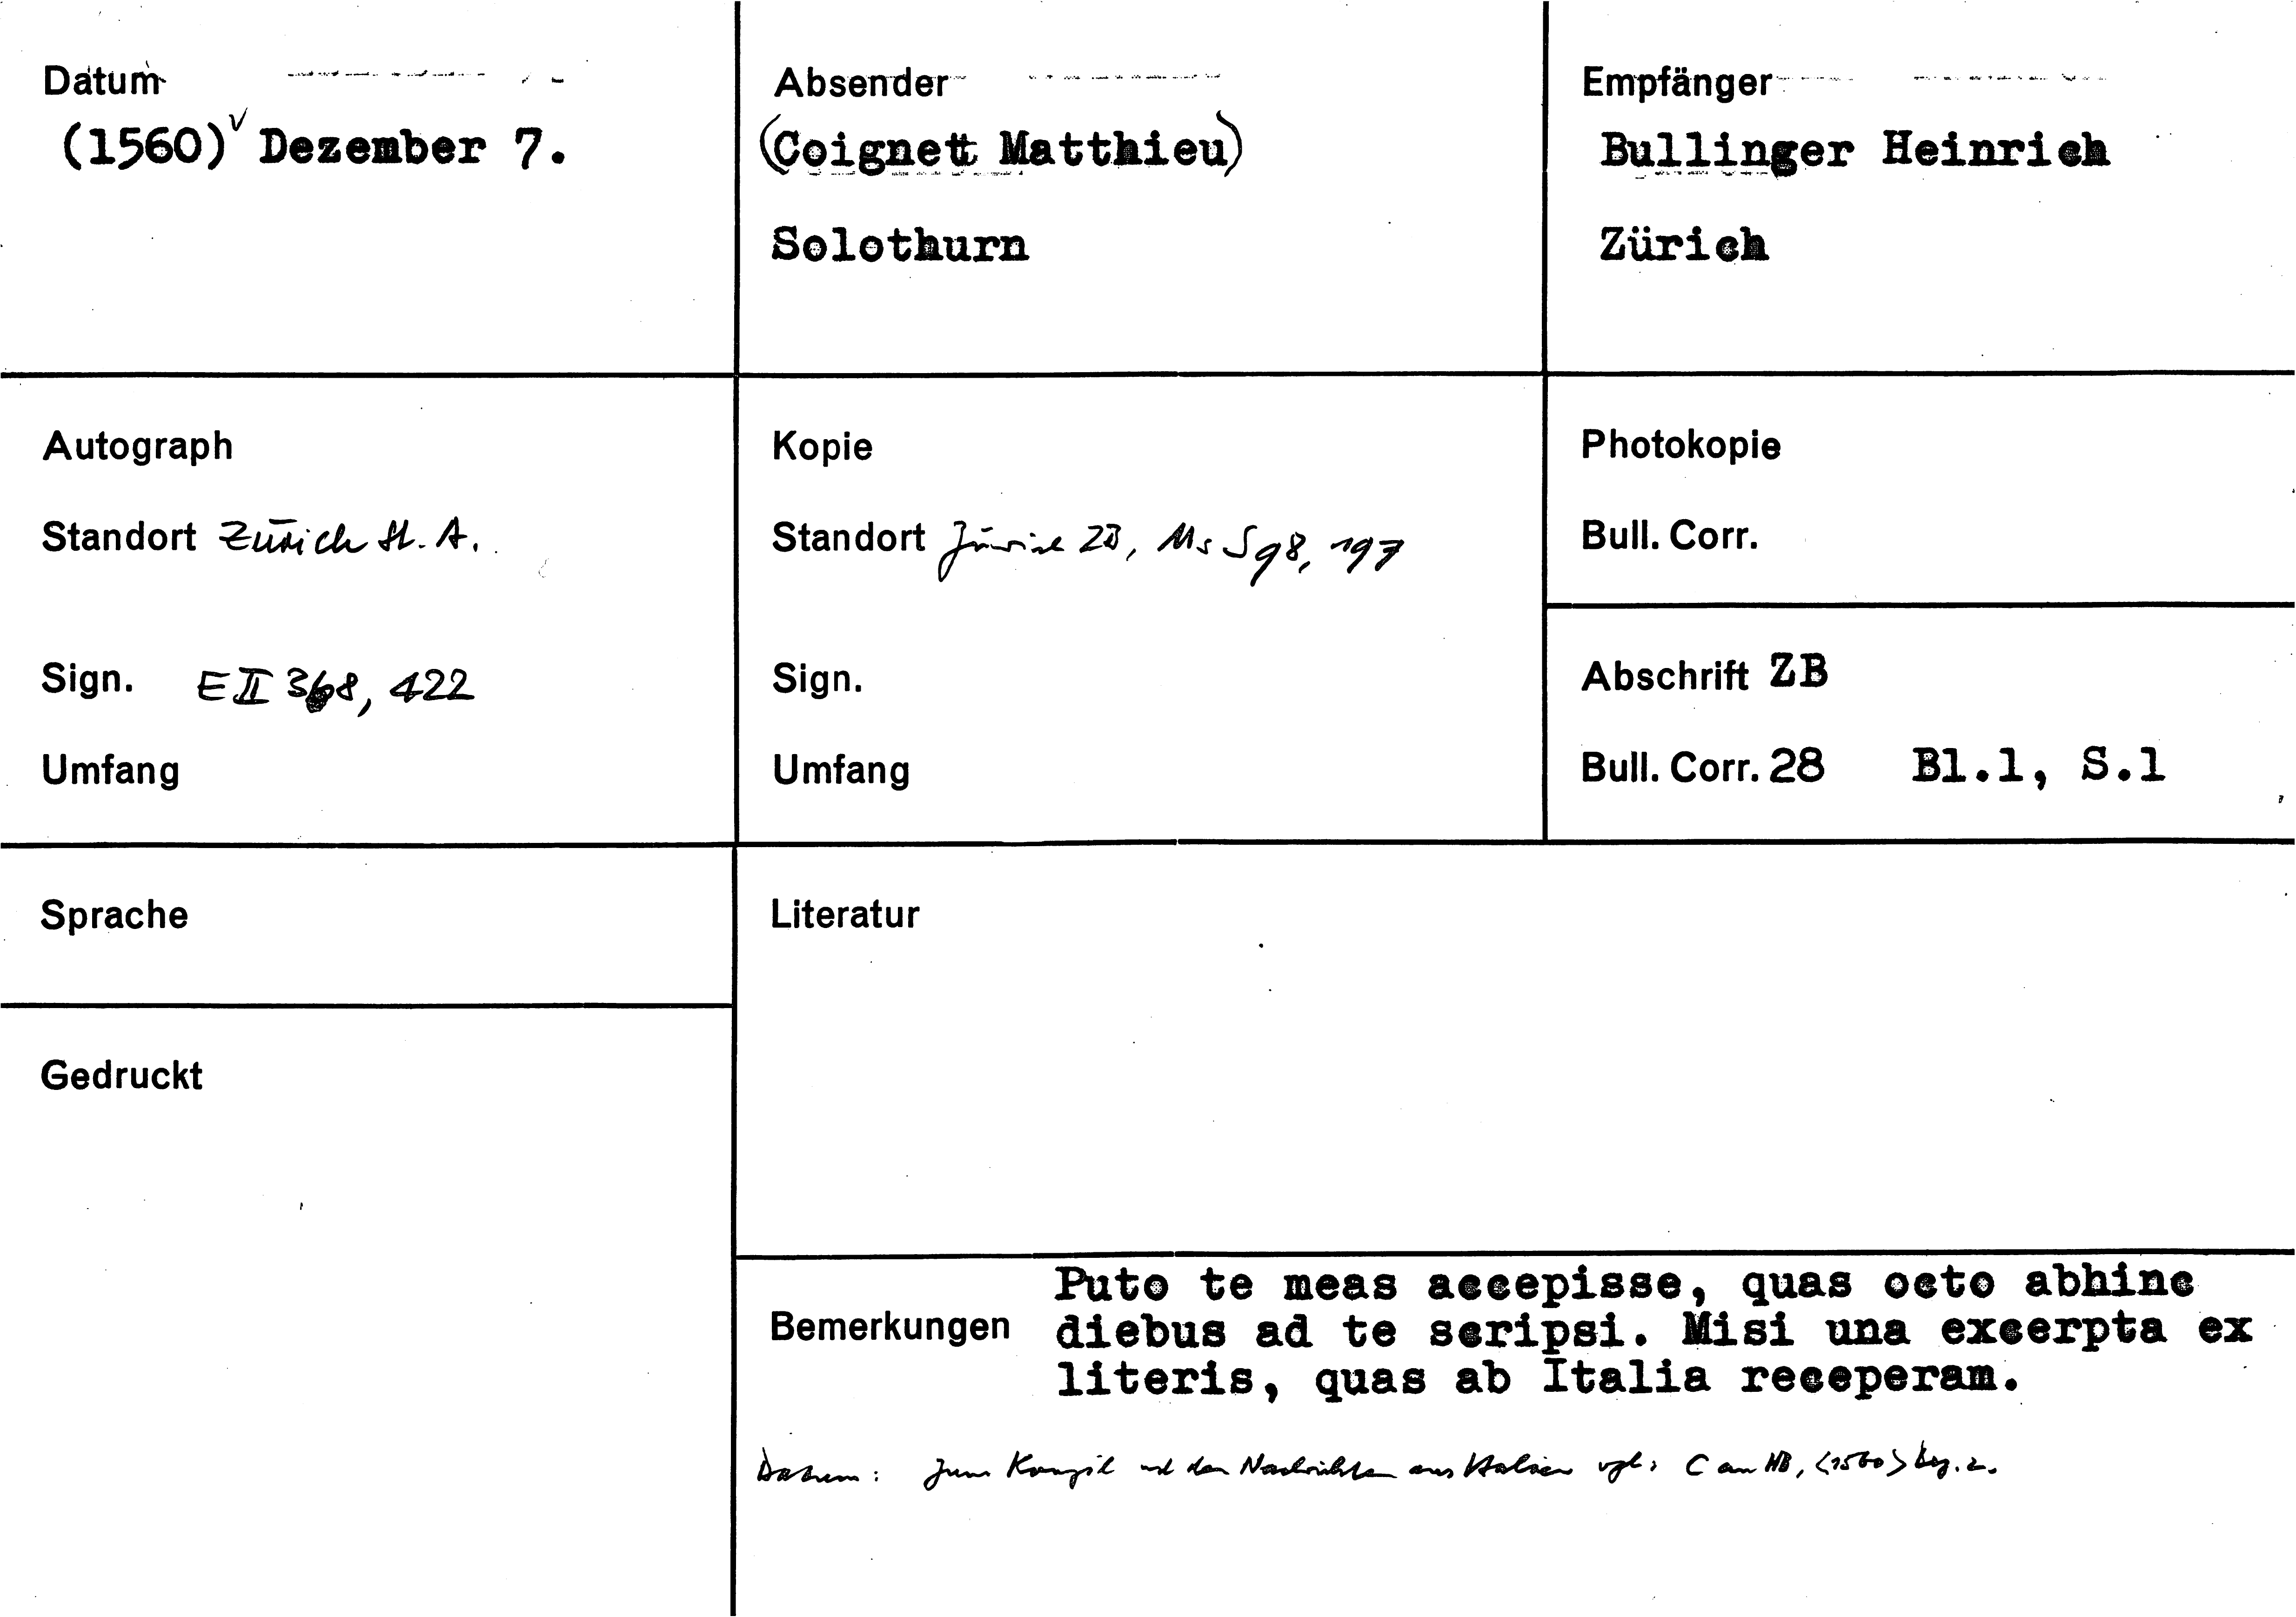 Datum
(1560) Dezember 7.
Absender
(Coignett Matthieu)
Solothurn
Empfänger
Bullinger Heinrich
Zürich
Autograph
Standort Zürich St. A.
Sign. E II 368, 422
Umfang
Kopie
Standort Zürich ZB, Ms S 98, 197
Sign.
Umfang
Photokopie
Bull. Corr.
Abschrift ZB
Bull. Corr. 28 Bl.1, S.1
Sprache
Literatur
Gedruckt
Bemerkungen
Puto te meas accepisse, quas octo abhinc
diebus ad te scripsi. Misi una excerpta ex
literis, quas ab Italia receperam.
Datum: Zum Konzil und den Nachrichten aus Italien vgl. C an HB, <1560> Dez. 2.